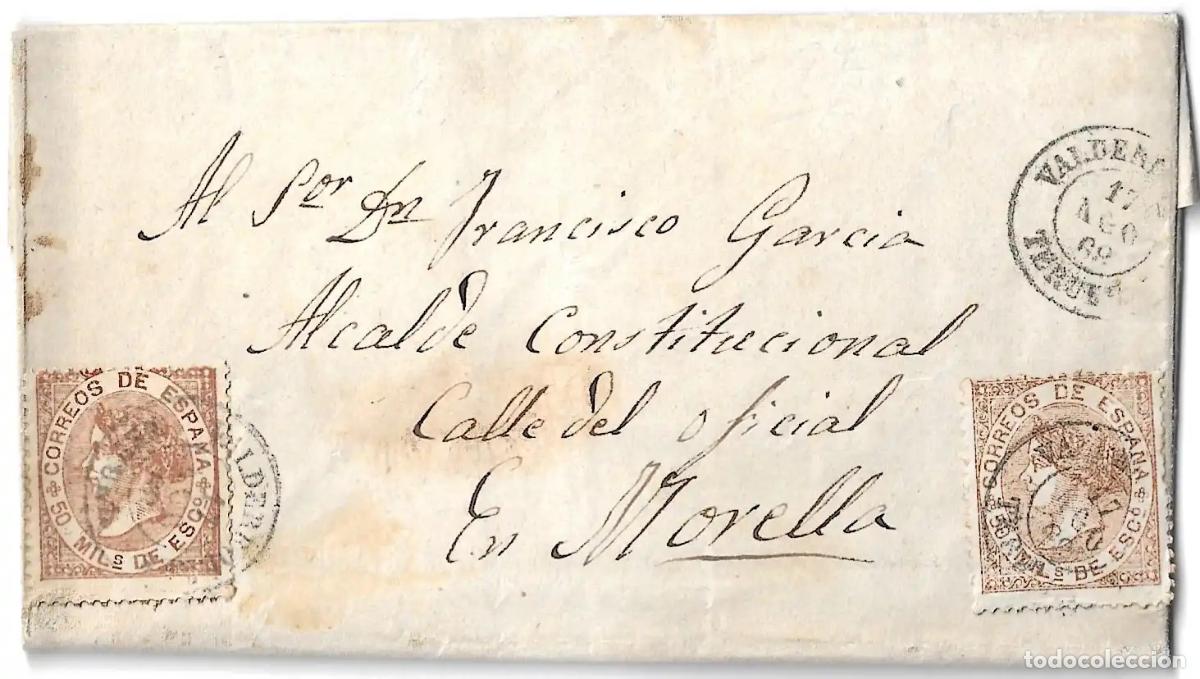 VALDER
17
AGO
69
TERUEL
Al Sor Dn Francisco Garcia
Alcalde Constitucional
Calle del oficial
En Morella
CORREOS DE ESPAÑA
50 MILS DE ESCO
VALDERR
CORREOS DE ESPAÑA
50 MILS DE ESCO
17
todocoleccion